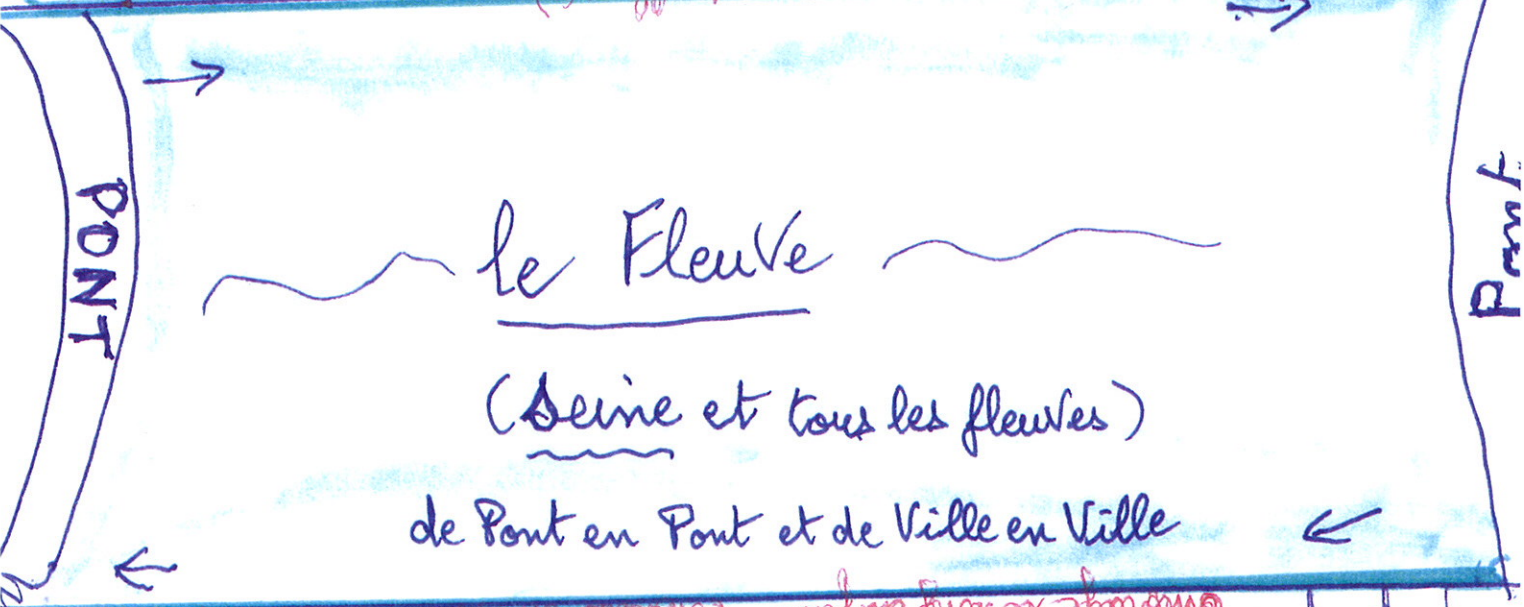 PONT
le Fleuve
Pont
(Seine et tous les fleuves)
de Pont en Pont et de Ville en Ville